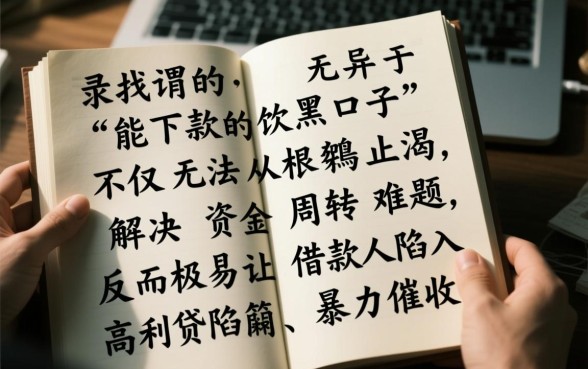 录找谓的, 无异于
“能下款的饮黑口子”
不仅无法从根止渴,
解决 资金 周转 难题,
反而极易让 借款人陷入
高利贷陷、暴力催收